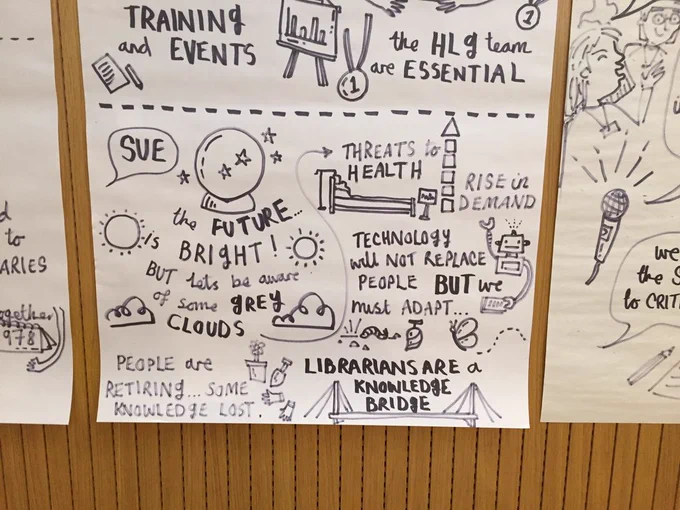 TRAINING
and EVENTS
1
the HLG team
are ESSENTIAL
1
SUE
the FUTURE...
is
BRIGHT!
BUT lets be aware
of some GREY
CLOUDS
THREATS to
HEALTH
RISE in
DEMAND
TECHNOLOGY
will NOT REPLACE
PEOPLE BUT we
must ADAPT...
PEOPLE are
RETIRING... SOME
KNOWLEDGE LOST.
LIBRARIANS ARE a
KNOWLEDGE
BRIDGE
d
to
ARIES
ogether
978
we
the S
to CRIT